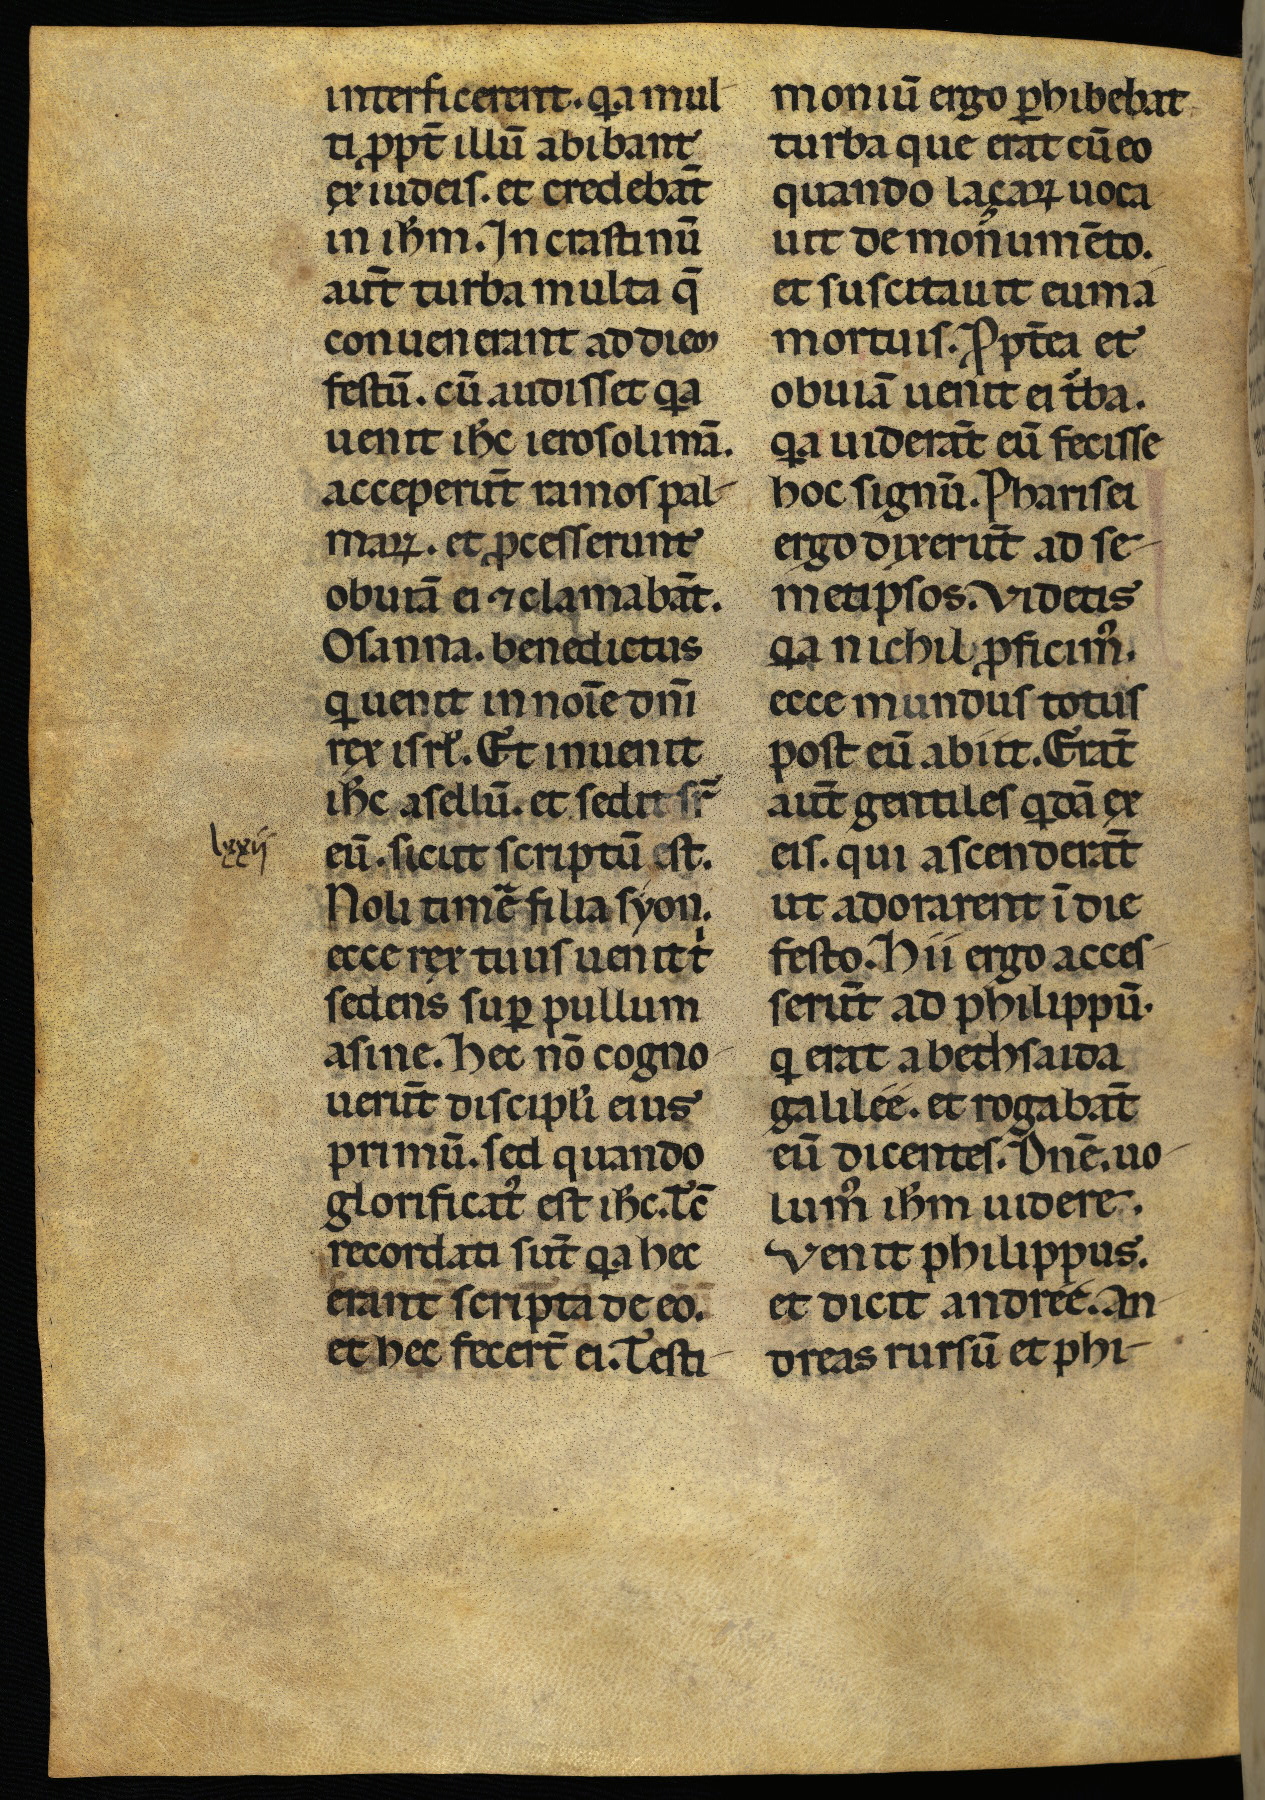 interficerent. qa mul-
ti ppt̄ illū abibant
ex iudeis. et credebāt
in ihm̄. In crastinū
aut̄ turba multa q̄
conuenerant ad diem
festū. cū audisset qa
uenit ihc̄ ierosolimā.
acceperūt ramos pal-
maꝝ. et ꝓcesserunt
obuiā ei ⁊ clamabāt.
Osanna. benedictus
q uenit in noīe dnī
rex isrl̄. Et inuenit
ihc̄ asellū. et sedit sr̄
lxxii
eū. sicut scriptū est.
Noli timē filia syon.
ecce rex tuus uenit t
sedens suꝑ pullum
asine. hec nō cogno-
uerūt discipl̄i eius
primū. sed quando
glorificat᾽ est ihc̄. Tc̄
recordati sūt qa hec
erant scripta de eo.
et hec fecert̄ ei. Testi-
moniū ergo ꝑhibebat
turba que erat cū eo
quando laçaꝝ uoca
uit de monumēto.
et suscitauit eum a
mortuis. Ppt̄ea et
obuiā uenit ei tͥba.
qa uiderāt eū fecisse
hoc signū. Pharisei
ergo dixerūt ad se-
metipsos. Videtis
qa nichil ꝓficim᾽.
ecce mundus totus
post eū abiit. Erāt
aut̄ gentiles qdā ex
eis. qui ascenderāt
ut adorarent ī die
festo. Hii ergo acces-
serūt ad philippū.
q erat a bethsaida
galilee. et rogabāt
eū dicentes. Dnē. uo-
lum᾽ ihm̄ uidere.
Venit philippus.
et dicit andree. An-
dreas rursū et phi-